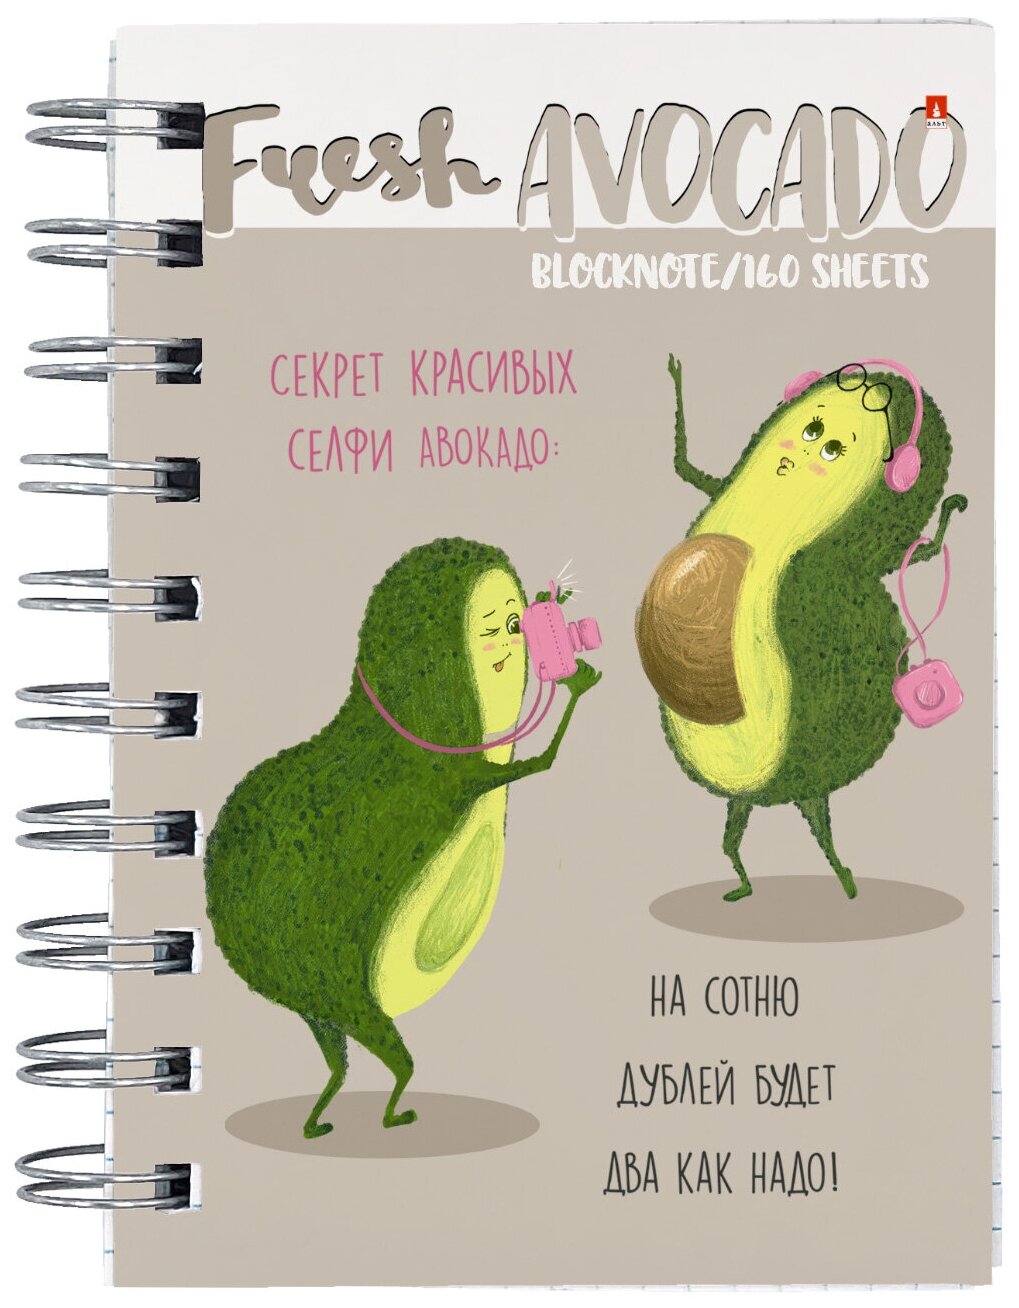 Fresh AVOCADO
АЛЬТ
BLOCKNOTE/160 SHEETS
СЕКРЕТ КРАСИВЫХ
СЕЛФИ АВОКАДО:
НА СОТНЮ
ДУБЛЕЙ БУДЕТ
ДВА КАК НАДО!